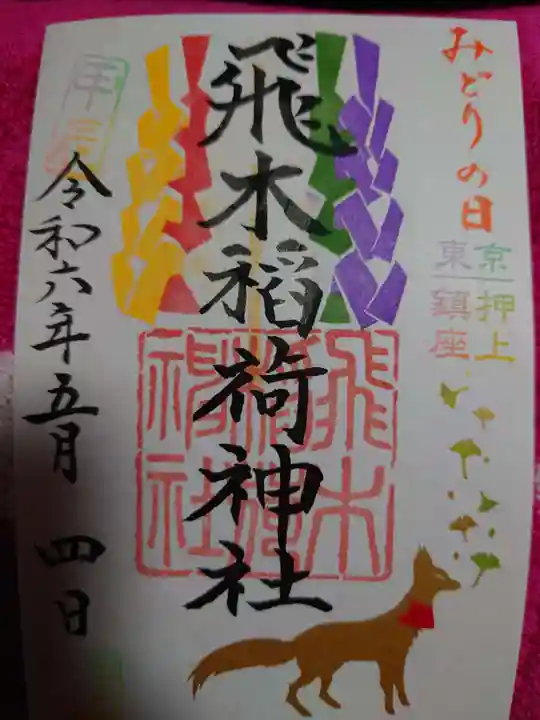 みどりの日
東京押上
鎮座
飛木稲荷神社
飛木稲荷神社
甲辰
令和六年五月四日